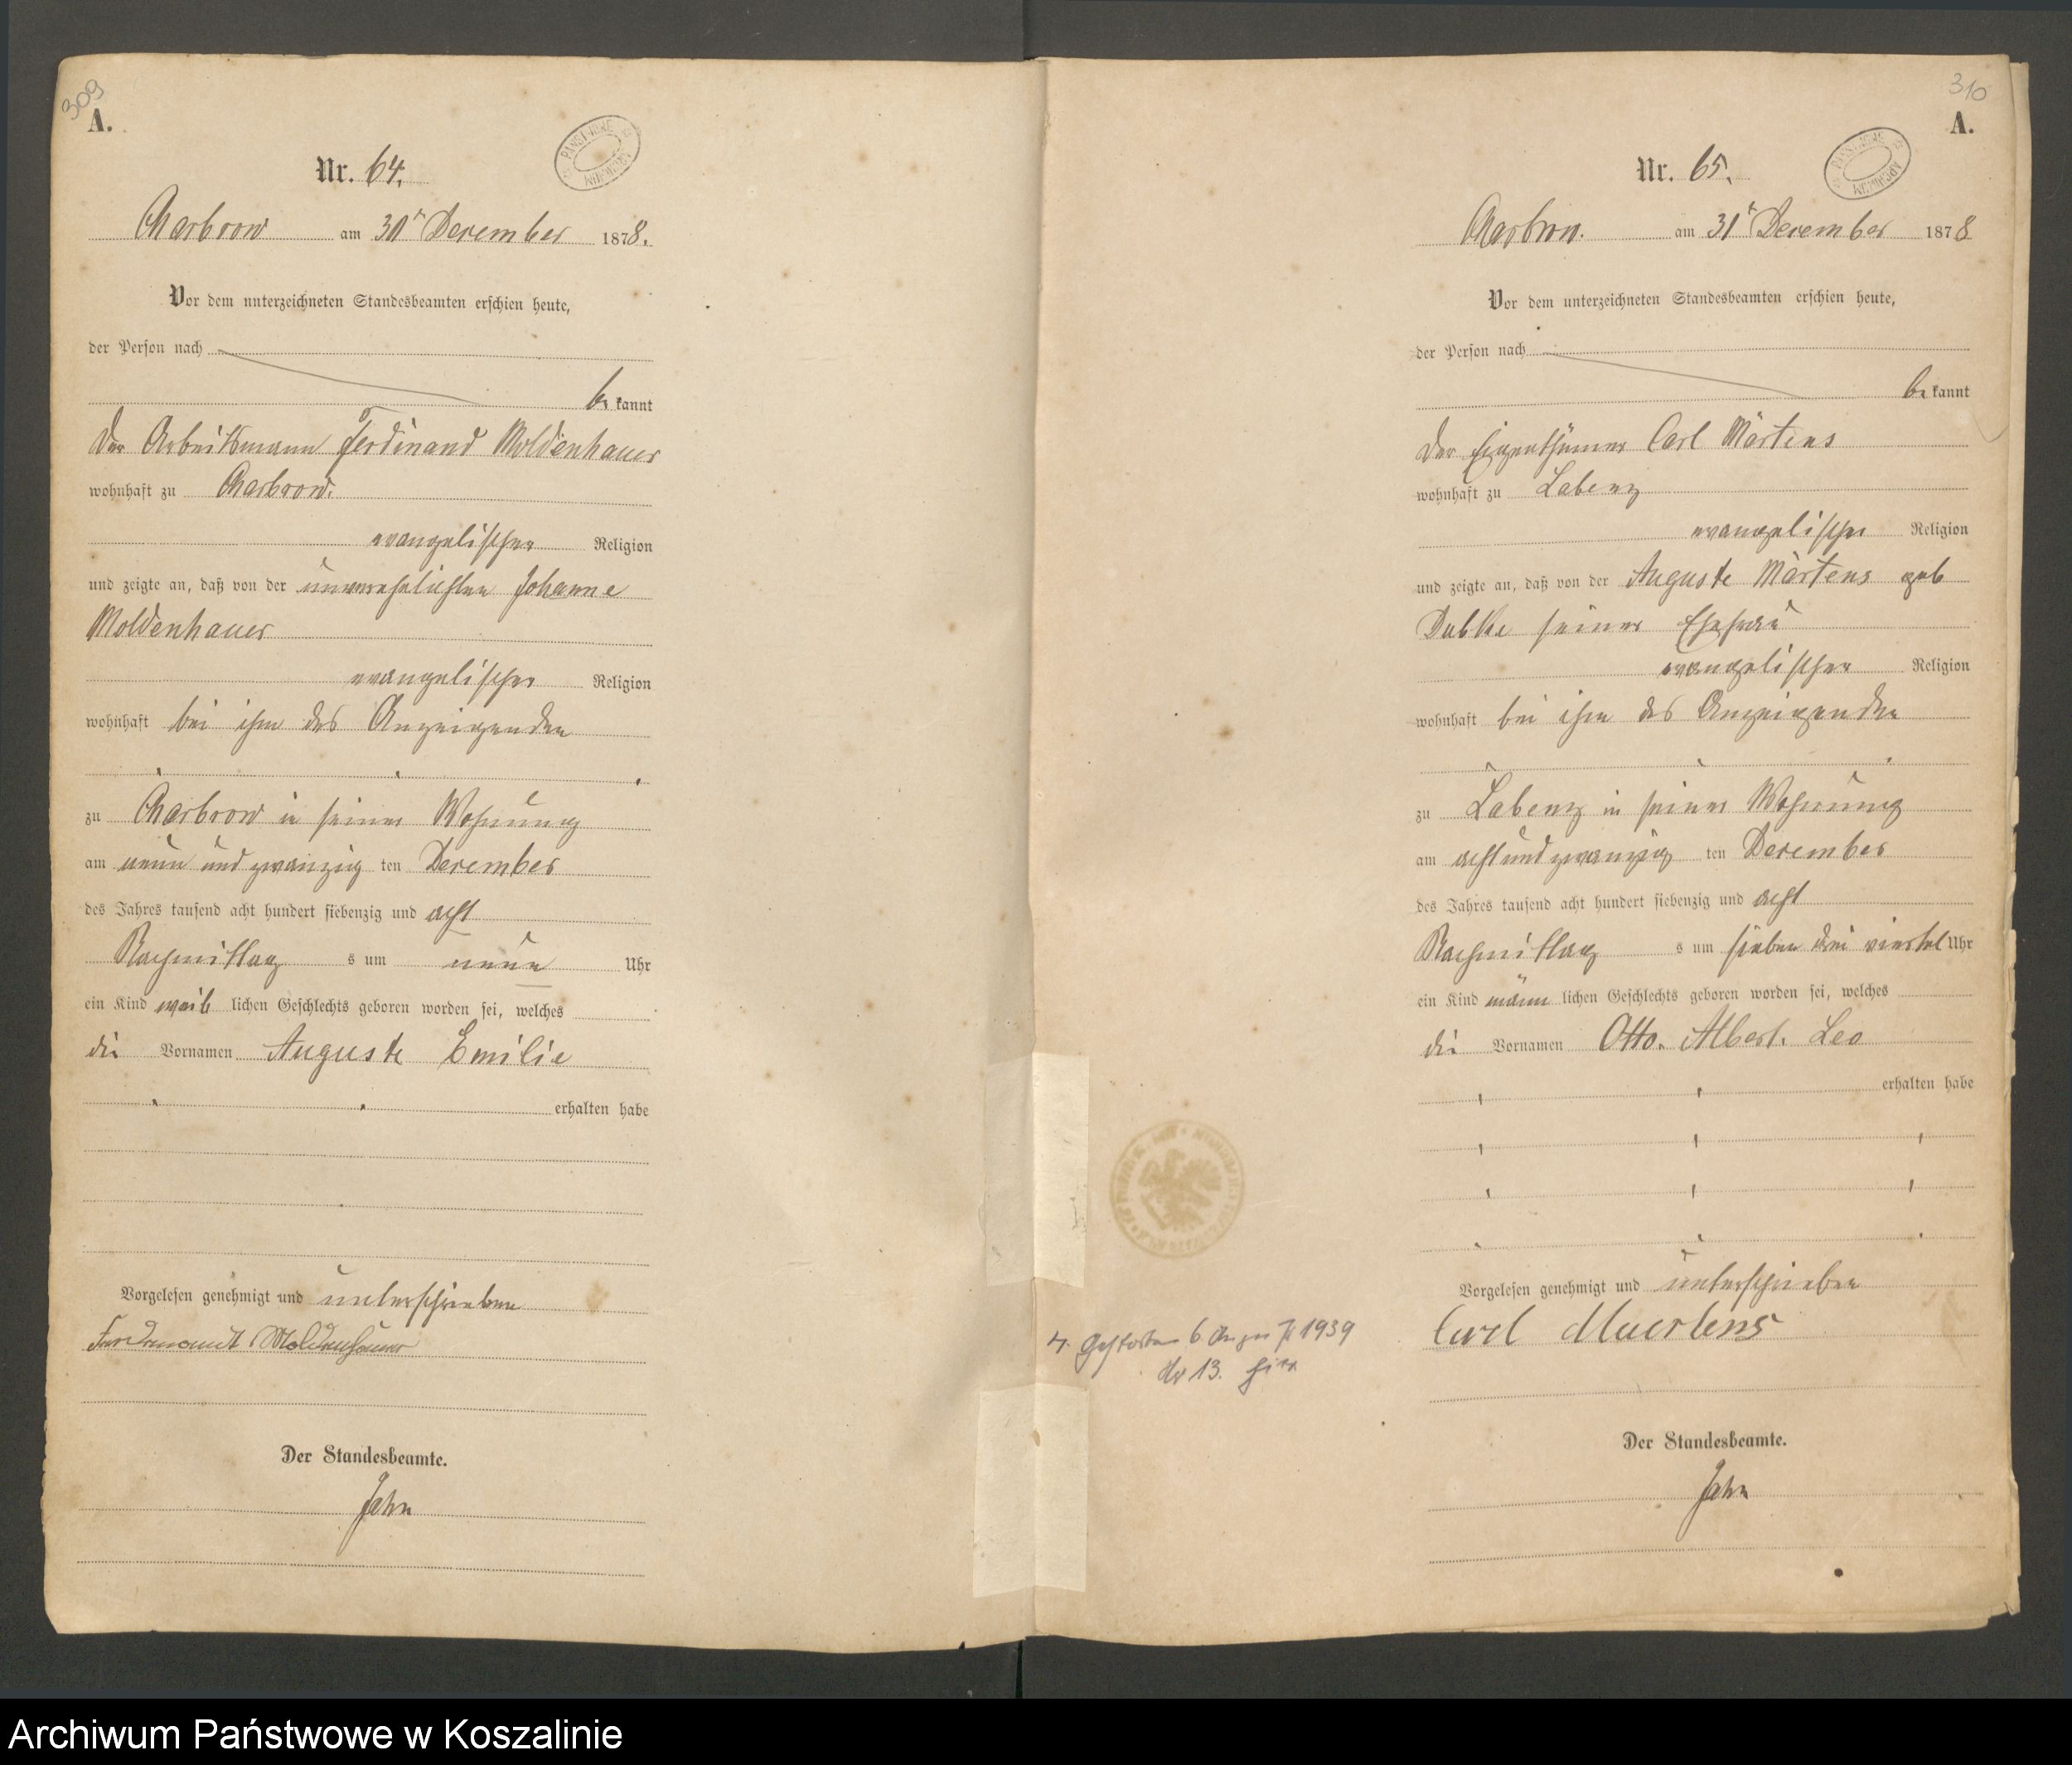 309
A.
PAŃSTWOWE
ARCHIWUM
Nr. 64.
Charbrow am 30ᵗ December 1878.
Vor dem unterzeichneten Standesbeamten erschien heute,
der Person nach
be kannt
Der Arbeitsmann Ferdinand Moldenhauer
wohnhaft zu Charbrow.
evangelischer Religion
und zeigte an, daß von der unverehelichten Johanne
Moldenhauer
evangelischer Religion
wohnhaft bei ihm des Anzeigenden
zu Charbrow in seiner Wohnung
am neun und zwanzig ten December
des Jahres tausend acht hundert siebenzig und acht
Nachmittag s um neun Uhr
ein Kind weib lichen Geschlechts geboren worden sei, welches
die Vornamen Auguste Emilie
erhalten habe
Vorgelesen genehmigt und unterschrieben
Ferdinandt Moldenhauer
Der Standesbeamte.
Jahn
310
A.
PAŃSTWOWE
ARCHIWUM
Nr. 65.
Charbrow. am 31ᵗ December 1878
Vor dem unterzeichneten Standesbeamten erschien heute,
der Person nach
be kannt
Der Eigenthümer Carl Märtens
wohnhaft zu Labenz
evangelischer Religion
und zeigte an, daß von der Auguste Märtens geb
Dubke seiner Ehefrau
evangelischer Religion
wohnhaft bei ihm des Anzeigenden
zu Labenz in seiner Wohnung
am acht und zwanzig ten December
des Jahres tausend acht hundert siebenzig und acht
Nachmittag s um sieben drei viertel Uhr
ein Kind männ lichen Geschlechts geboren worden sei, welches
die Vornamen Otto. Albert. Leo
erhalten habe
Vorgelesen genehmigt und unterschrieben
Carl Maertens
Der Standesbeamte.
Jahn
gestorben 6 1939
Nr 13.
Archiwum Państwowe w Koszalinie